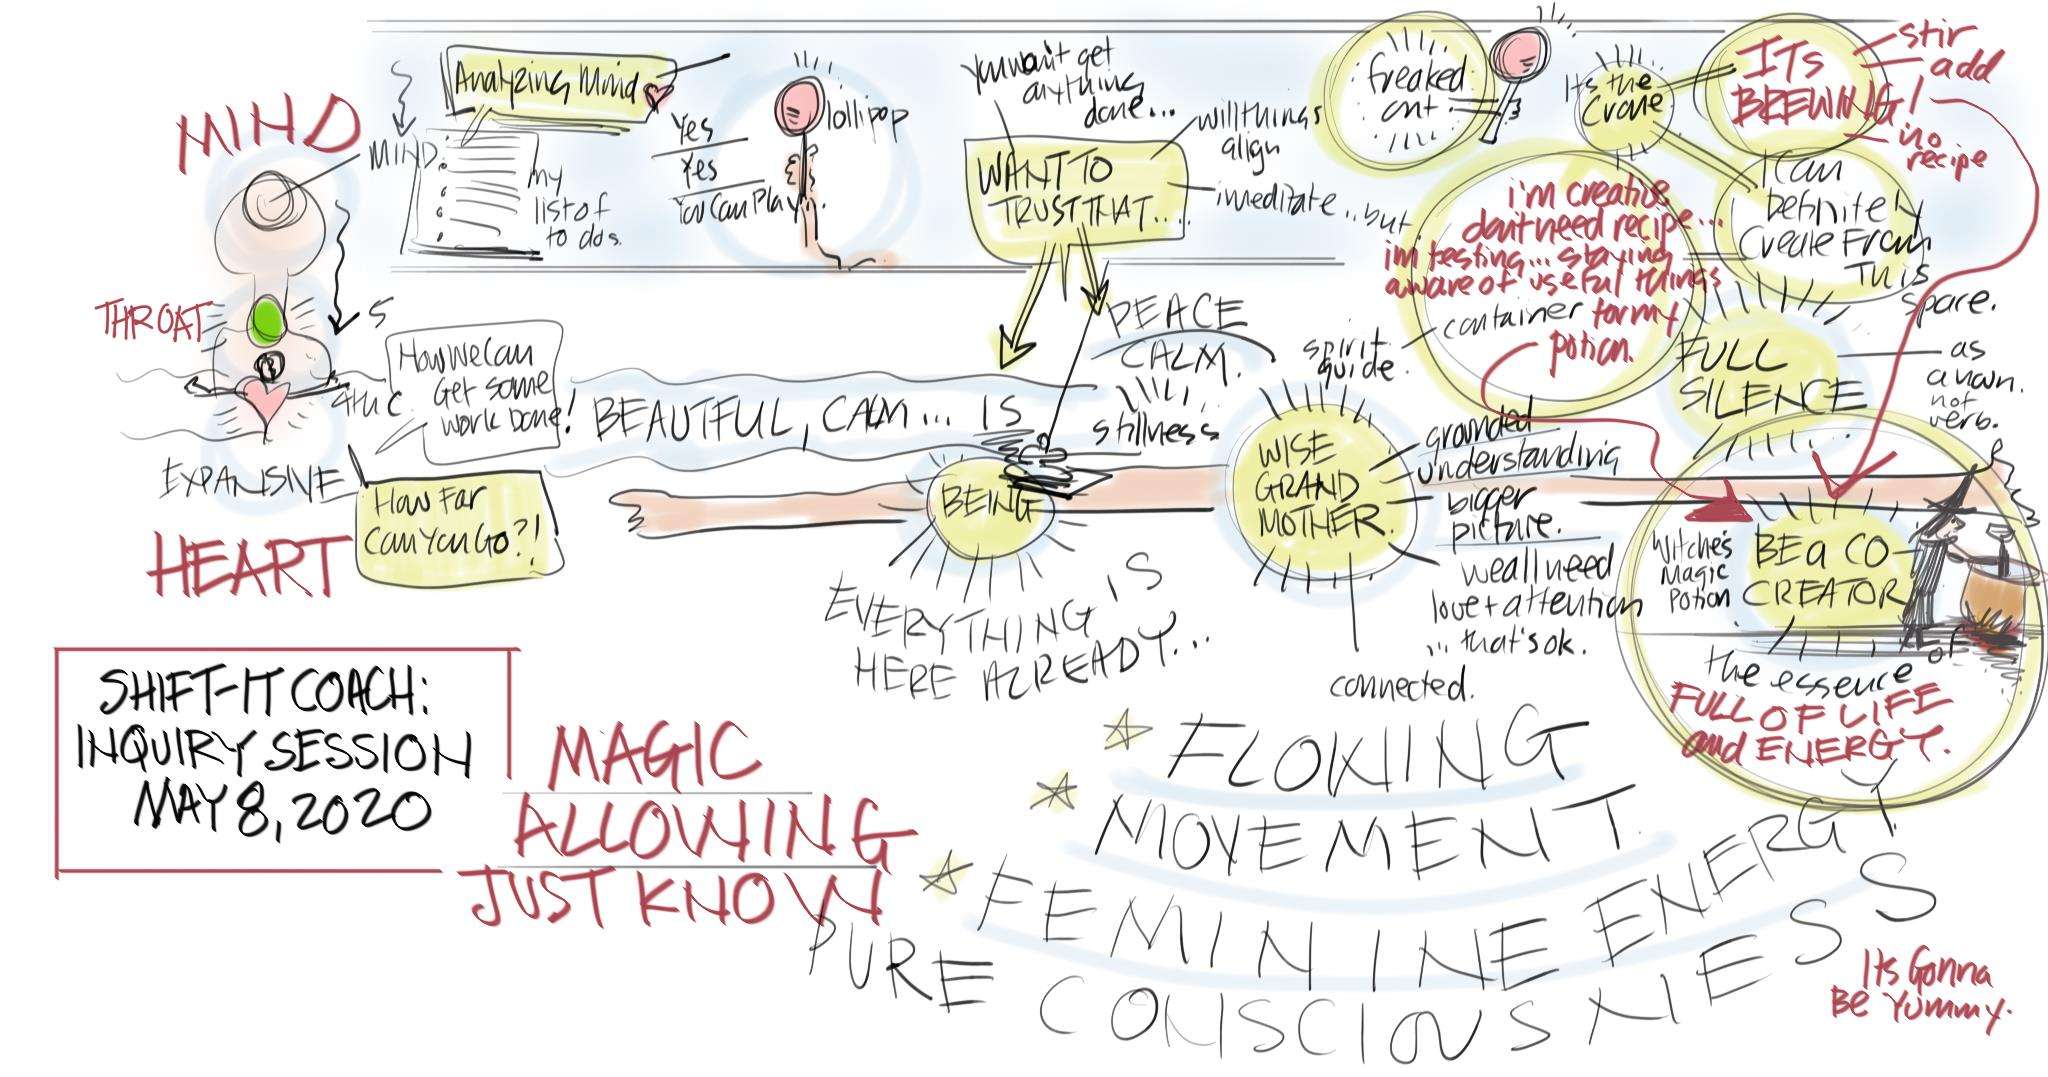 MIND
MIND.
Analyzing Mind
my
list of
to dos.
Yes
Yes
You Can Play!
lollipop
You won't get
anything
done...
WANT TO
TRUST THAT....
will things
align
imeditate...but
freaked
out
Its the
Crone
ITS
BREWING!
stir
add
no
recipe
I Can
Definitely
Create From
This
space.
i'm creative
don't need recipe...
im testing... staying
aware of useful things
for my
potion.
container
spirit
guide.
THROAT
HEART
EXPANSIVE
How We Can
Get some
work Done!
How Far
Can You Go?!
BEAUTIFUL, CALM... IS
PEACE
CALM.
stillness
BEING
EVERYTHING IS
HERE ALREADY...
WISE
GRAND
MOTHER.
grounded
understanding
bigger
picture.
we all need
love + attention
... that's ok.
connected.
FULL
SILENCE
as
a noun.
not
verb.
Witche's
Magic
Potion
BE a CO
CREATOR
the essence of
FULL OF LIFE
and ENERGY.
SHIFT-IT COACH:
INQUIRY SESSION
MAY 8, 2020
MAGIC
ALLOWING
JUST KNOW
FLOWING
MOVEMENT
FEMININE ENERGY
PURE CONSCIOUSNESS
Its Gonna
Be Yummy.